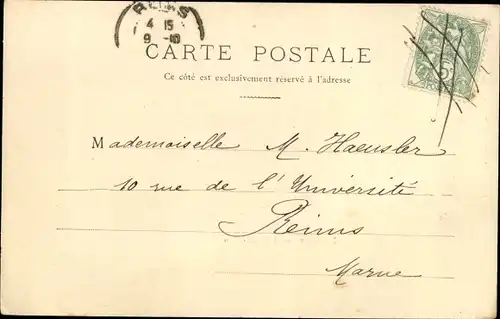 REIMS
4 15
9 -10
CARTE POSTALE
Ce côté est exclusivement réservé à l'adresse
Mademoiselle M. Haeusler
10 rue de l'Université
Reims
Marne
5